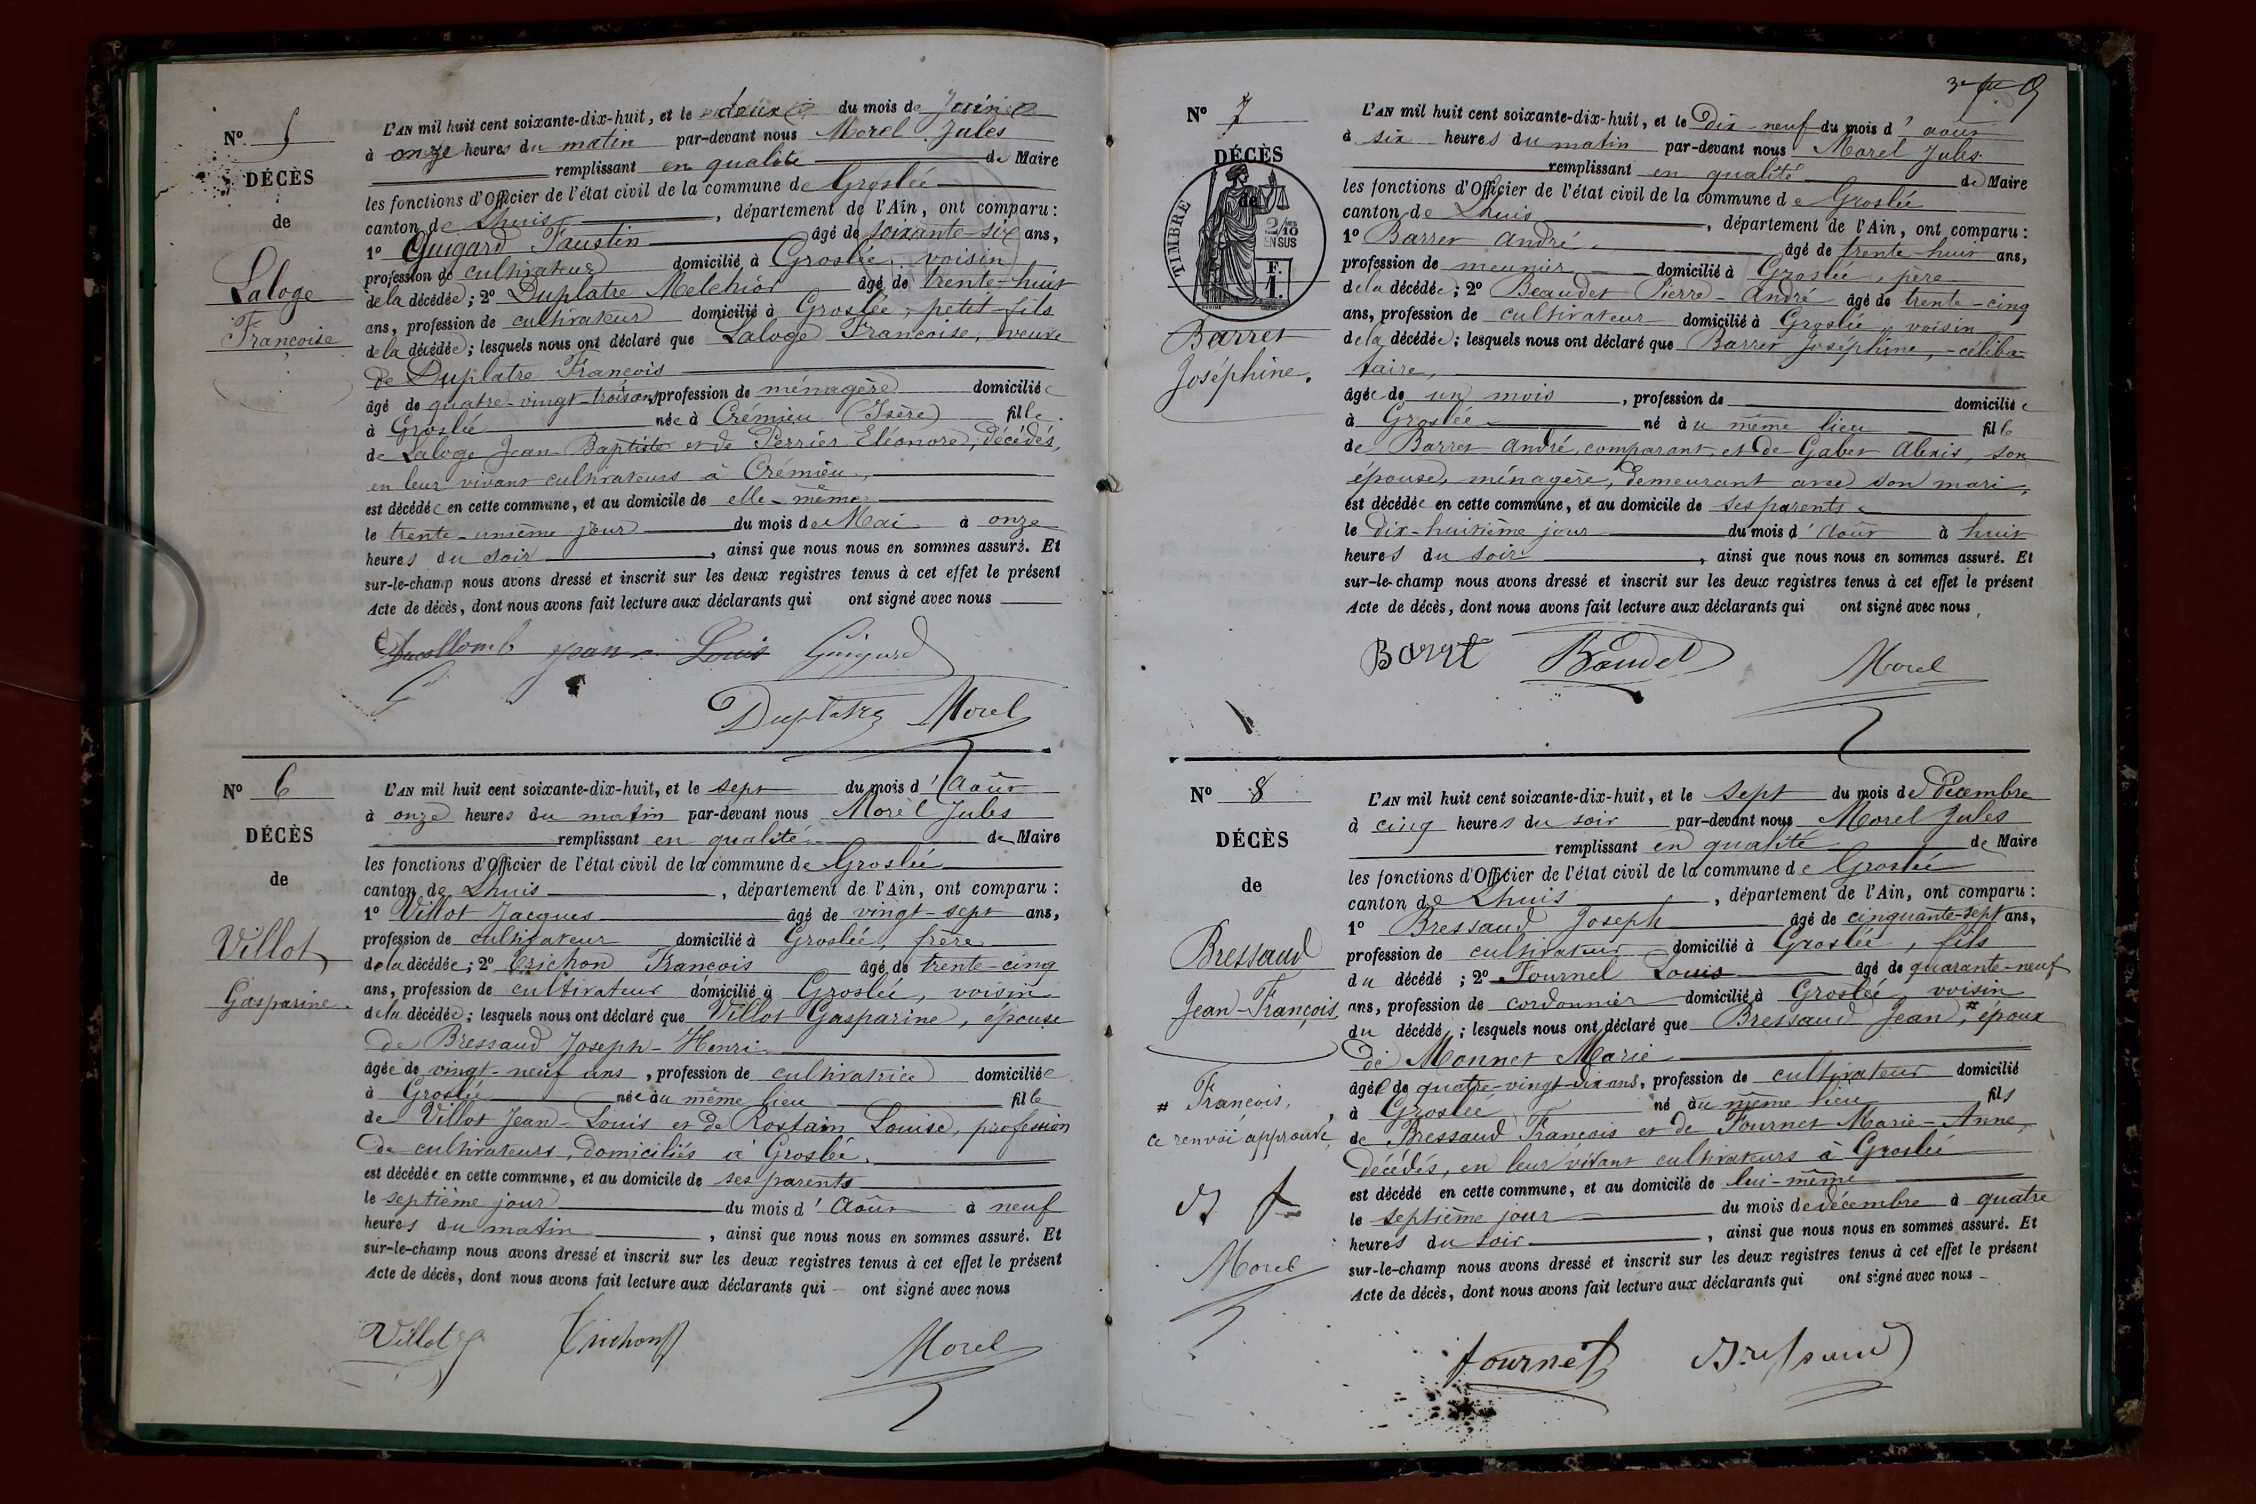 N° 5
DÉCÈS
de
Laloge
Françoise
L'AN mil huit cent soixante-dix-huit, et le deux du mois de Juin
à onze heures du matin par-devant nous Morel Jules
remplissant en qualité de Maire
les fonctions d'Officier de l'état civil de la commune de Groslée
canton de Lhuis, département de l'Ain, ont comparu :
1° Guigard Faustin âgé de soixante-six ans,
profession de cultivateur domicilié à Groslée, voisin
de la décédée ; 2° Duplatre Melchior âgé de trente-huit
ans, profession de cultivateur domicilié à Groslée, petit-fils
de la décédée ; lesquels nous ont déclaré que Laloge Francoise, veuve
de Duplatre François
âgé de quatre-vingt-trois ans, profession de ménagère domiciliée
à Groslé née à Crémieu (Isère) fille
de Laloge Jean Baptiste et de Perrier Eléonore, décédés,
en leur vivant cultivateurs à Crémieu,
est décédée en cette commune, et au domicile de elle-même
le trente-unième jour du mois de Mai à onze
heures du soir, ainsi que nous nous en sommes assuré. Et
sur-le-champ nous avons dressé et inscrit sur les deux registres tenus à cet effet le présent
Acte de décès, dont nous avons fait lecture aux déclarants qui ont signé avec nous
Jean Louis Guigard
Duplatre Morel
N° 6
DÉCÈS
de
Villot
Gasparine
L'AN mil huit cent soixante-dix-huit, et le sept du mois d'Août
à onze heures du matin par-devant nous Morel Jules
remplissant en qualité de Maire
les fonctions d'Officier de l'état civil de la commune de Groslée
canton de Lhuis, département de l'Ain, ont comparu :
1° Villot Jacques âgé de vingt-sept ans,
profession de cultivateur domicilié à Groslée, frère
de la décédée ; 2° Trichon François âgé de trente-cinq
ans, profession de cultivateur domicilié à Groslée, voisin
de la décédée ; lesquels nous ont déclaré que Villot Gasparine, épouse
de Bressaud Joseph-Henri
âgée de vingt-neuf ans, profession de cultivatrice domiciliée
à Groslée née au même lieu fille
de Villot Jean-Louis et de Rostain Louise, profession
de cultivateurs, domiciliés à Groslée,
est décédée en cette commune, et au domicile de ses parents
le septième jour du mois d'Août à neuf
heures du matin, ainsi que nous nous en sommes assuré. Et
sur-le-champ nous avons dressé et inscrit sur les deux registres tenus à cet effet le présent
Acte de décès, dont nous avons fait lecture aux déclarants qui ont signé avec nous
Villot Trichon Morel
N° 7
DÉCÈS
de
TIMBRE
2/10
EN SUS
F.
1.
Barret
Joséphine.
L'AN mil huit cent soixante-dix-huit, et le Dix-neuf du mois d'août
à six heures du matin par-devant nous Morel Jules
remplissant en qualité de Maire
les fonctions d'Officier de l'état civil de la commune de Groslée
canton de Lhuis, département de l'Ain, ont comparu :
1° Barret André âgé de trente-huit ans,
profession de meunier domicilié à Groslée, père
de la décédée ; 2° Beaudet Pierre-André âgé de trente-cinq
ans, profession de cultivateur domicilié à Groslée, voisin
de la décédée ; lesquels nous ont déclaré que Barret Joséphine, céliba-
taire,
âgée de un mois, profession de domiciliée
à Groslée né au même lieu fille
de Barret André, comparant, et de Gabet Alexis, son
épouse, ménagère, demeurant avec son mari,
est décédée en cette commune, et au domicile de ses parents
le Dix-huitième jour du mois d'Août à huit
heures du soir, ainsi que nous nous en sommes assuré. Et
sur-le-champ nous avons dressé et inscrit sur les deux registres tenus à cet effet le présent
Acte de décès, dont nous avons fait lecture aux déclarants qui ont signé avec nous,
Barret Baudet Morel
N° 8
DÉCÈS
de
Bressaud
Jean-François
# Francois,
ce renvoi approuvé
B f
Morel
L'AN mil huit cent soixante-dix-huit, et le sept du mois de Décembre
à cinq heures du soir par-devant nous Morel Jules
remplissant en qualité de Maire
les fonctions d'Officier de l'état civil de la commune de Groslée
canton de Lhuis, département de l'Ain, ont comparu :
1° Bressaud Joseph âgé de cinquante-sept ans,
profession de cultivateur domicilié à Groslée, fils
du décédé ; 2° Fournel Louis âgé de quarante-neuf
ans, profession de cordonnier domicilié à Groslée voisin
du décédé ; lesquels nous ont déclaré que Bressaud Jean, # époux
de Monnet Marie
âgé de quatre-vingt-dix ans, profession de cultivateur domicilié
à Groslée né au même lieu fils
de Bressaud François et de Fournet Marie-Anne,
décédés, en leur vivant cultivateurs à Groslée
est décédé en cette commune, et au domicile de lui-même
le septième jour du mois de décembre à quatre
heures du soir, ainsi que nous nous en sommes assuré. Et
sur-le-champ nous avons dressé et inscrit sur les deux registres tenus à cet effet le présent
Acte de décès, dont nous avons fait lecture aux déclarants qui ont signé avec nous
fournet Bressaud